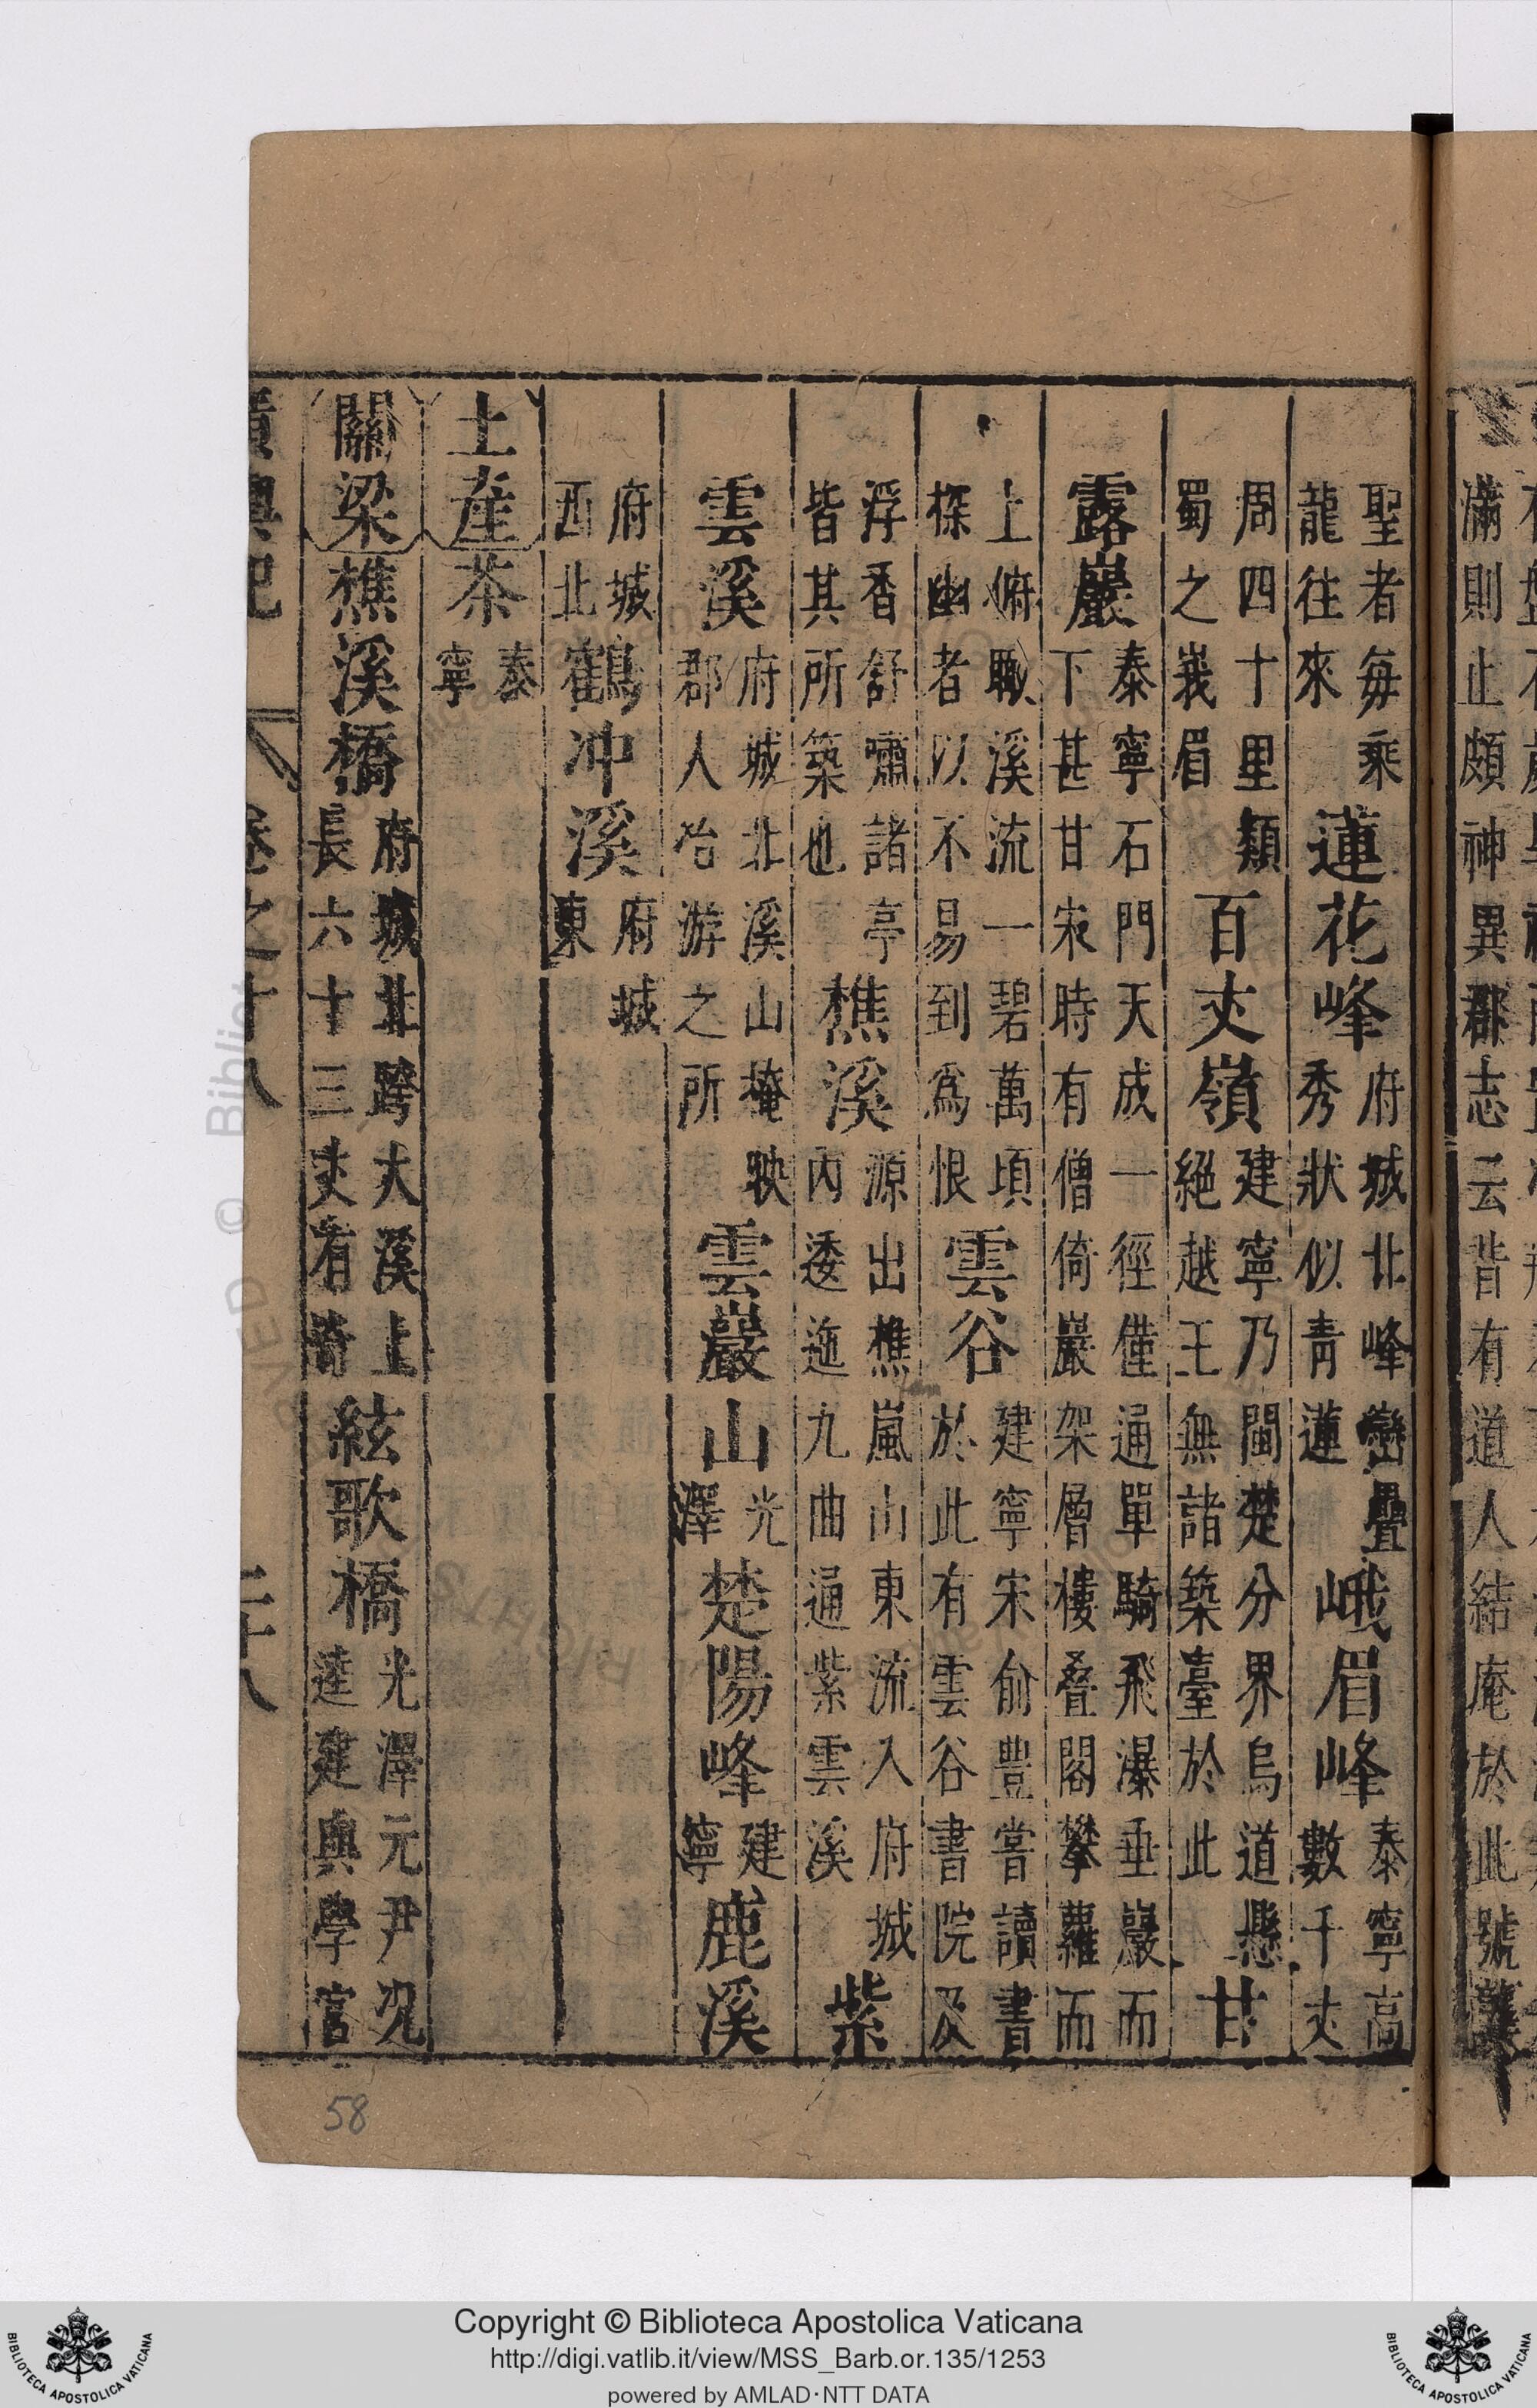 聖者每乘
龍往來
蓮花峰
府城北峰巒疊
秀狀似青蓮
峨眉峰
泰寧高
數千丈
周四十里類
蜀之峩眉
百丈嶺
建寧乃閩楚分界烏道懸
絕越王無諸築臺於此
甘
露巖
泰寧石門天成一徑僅通單騎飛瀑垂巖而
下甚甘宋時有僧倚巖架層樓叠閣攀蘿而
上俯瞰溪流一碧萬頃
探幽者以不易到爲恨
雲谷
建寧宋俞豐嘗讀書
於此有雲谷書院及
浮香舒嘯諸亭
皆其所築也
樵溪
源出樵嵐山東流入府城
内逶迤九曲通紫雲溪
紫
雲溪
府城北溪山掩映
郡人怡游之所
雲巖山
光
澤
楚陽峰
建
寧
鹿溪
府城
西北
鶴冲溪
府城
東
土産
茶
泰
寧
關梁
樵溪橋
府城北跨大溪上
長六十三丈有奇
絃歌橋
光澤元尹况
逵建與學宮
廣輿記
卷之十八
二十八
滿則止頗神異郡志云昔有道人結庵於此號
58
Copyright © Biblioteca Apostolica Vaticana
http://digi.vatlib.it/view/MSS_Barb.or.135/1253
powered by AMLAD·NTT DATA
BIBLIOTECA APOSTOLICA VATICANA
BIBLIOTECA APOSTOLICA VATICANA